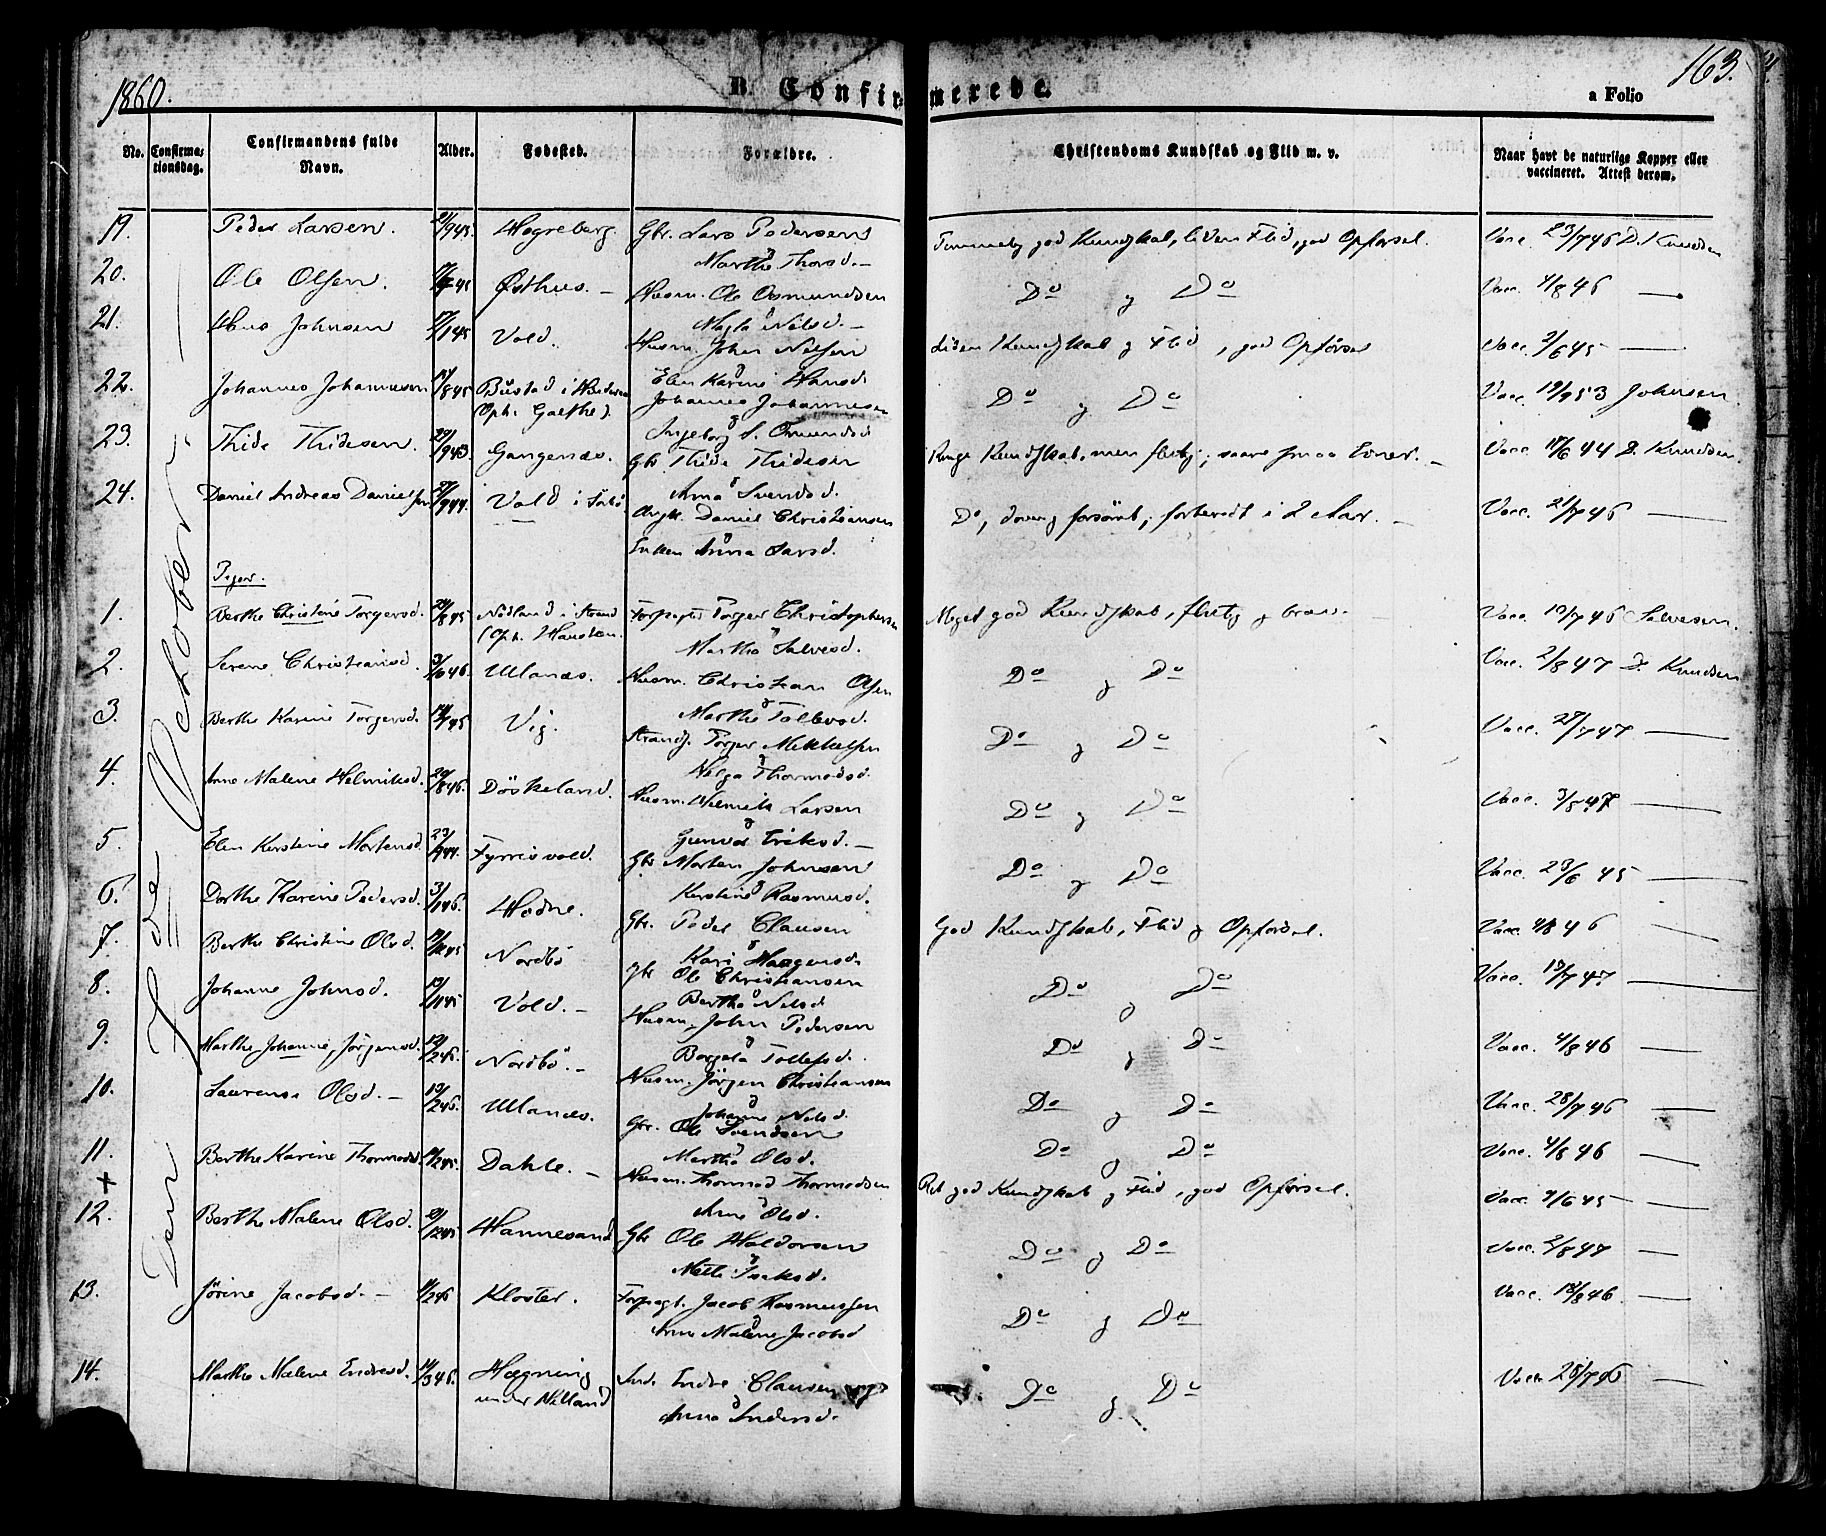 1860.
B. Confirmerede.
163.
a Folio
No. Confirmationsdag. Confirmandens fulde Navn. Alder. Fødested. Forældre. Christendoms Kundskab og Flid m. v. Naar havt de naturlige Kopper eller vaccineret. Attest derom.
Den 7de October
19. Peder Larsen. Hegreberg. Gbr. Lars Pedersen & Marthe Thorsd. Temmelig god Kundskab, liden Flid, god Opførsel. Vacc. 23/7 46 D. Knudsen
20. Ole Olsen. Østhus. Husm. Ole Osmundsen & Magla Nilsd. Do og Do Vacc. 4/8 46 —
21. Hans Johnsen 17/1 45 Vold. Husm. John Nilsen & Elen Karine Hansd. Liden Kundskab og Flid, god Opførsel Vacc. 2/6 45 —
22. Johannes Johannesen 17/8 45 (Oph. Galthe). Johannes Johannesen & Ingeborg S. Osmundsd. Do og Do Vacc. 19/9 53 Johnsen.
23. Thide Thidesen. Gangenæs. Gbr Thide Thidesen & Anna Svendsd. Ringe Kundskab, men flittig; saare smaa Evner. Vacc. 18/6 44 D. Knudsen.
24. Daniel Andreas Danielsen Vold i Daniel Christiansen & Enken Anna Larsd. Do, doven og forsømt; forberedt i 2 Aar. Vacc. 21/7 46 —
Piger.
1. Berthe Christine Torgersd. 29/8 45 i Strand (Oph. Forpagter Torger Christophersen & Martha Salvesd. Meget god Kundskab, flittig og brav. Vacc. 19/7 46 Salvesen.
2. Serene Christiansd. Ullanæs. Husm. Christian Olsen & Marthe Tollevsd. Do og Do Vacc. 2/8 47 D. Knudsen
3. Berthe Karine Torgersd. Vig. Strands. Torger Mikkelsen & Helga Thormodsd. Do og Do Vacc. 27/7 47 —
4. Anne Malene Helmiksd. 29/8 46. Döskeland. Husm. Helmik Larsen & Gunvor Eriksd. Do og Do Vacc. 3/8 47 —
5. Elen Kirstine Mortensd. Fyrrisvold. Gbr Morten Johnsen & Kirstine Rasmusd. Do og Do Vacc. 23/6 45 —
6. Dorthe Karine Pedersd. 3/1 46. Hodne. Gbr. Peder Clausen & Kari Haagensd. God Kundskab, Flid og Opførsel. Vacc. 4/8 46 —
7. Berthe Christine Olsd. Nordbö Gbr Ole Christiansen & Bertha Nilsd Do og Do Vacc. 19/7 47 —
8. Johanne Johnsd. Vold. Husm. John Pedersen & Borgela Tollefsd. Do og Do Vacc. 4/8 46 —
9. Marthe Johanne Jörgensd. 19/2 46. Nordbö. Husm. Jörgen Christiansen & Johanne Nilsd. Do og Do Vacc. 28/7 46 —
10. Laurense Olsd. 19/2 46. Ullanæs. Gbr. Ole Svendsen & Martha Olsd. Do og Do Vacc. 4/8 46 —
11. Berthe Karine Thormodsd. Dahle. Husm. Thormod Thormodsen & Anne Olsd. Ret god Kundskab og Flid, god Opførsel. Vacc. 4/6 45 —
+
12. Berthe Malene Olsd. Hannesand Gbr Ole Haldorsen & Mette Do og Do Vacc. 2/8 47 —
13. Jörine Jacobsd. Kloster. Forpagt. Jacob Rasmussen & Anne Malene Jacobsd Do og Do Vacc. 18/8 46 —
14. Marthe Malene Endresd. Hægning under Ind. Endre Clausen & Anna Andersd. Do og Do Vacc. 25/7 46 —